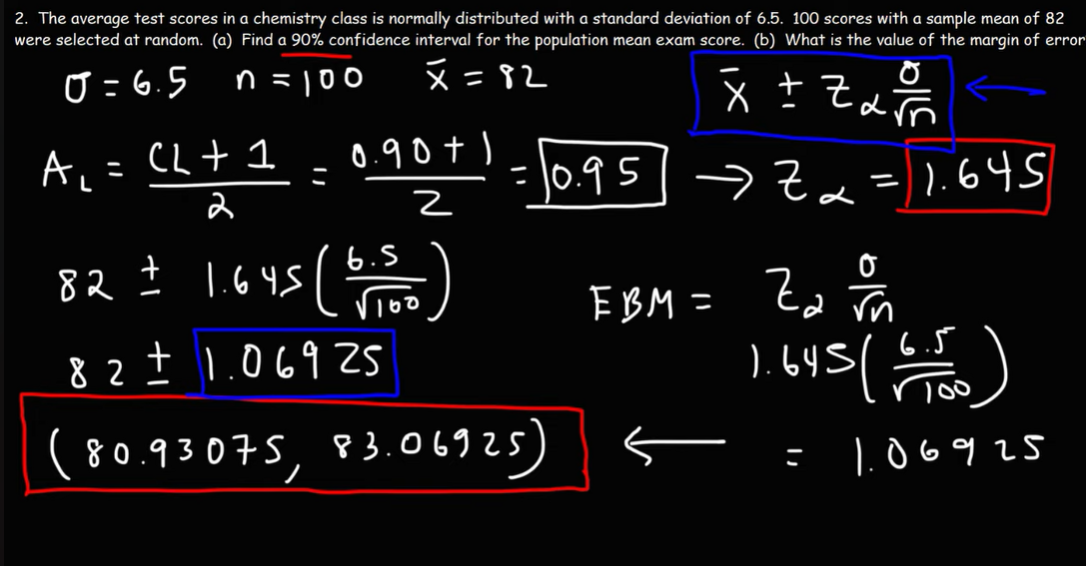 2. The average test scores in a chemistry class is normally distributed with a standard deviation of 6.5. 100 scores with a sample mean of 82
were selected at random. (a) Find a 90% confidence interval for the population mean exam score. (b) What is the value of the margin of error
σ = 6.5 n = 100 x̄ = 82
x̄ ± Zα σ/√n ←
A_L = (CL + 1)/2 = (0.90 + 1)/2 = 0.95 → Zα = 1.645
82 ± 1.645 (6.5/√100)
82 ± 1.06925
(80.93075, 83.06925) ←
EBM = Zα σ/√n
1.645 (6.5/√100)
= 1.06925